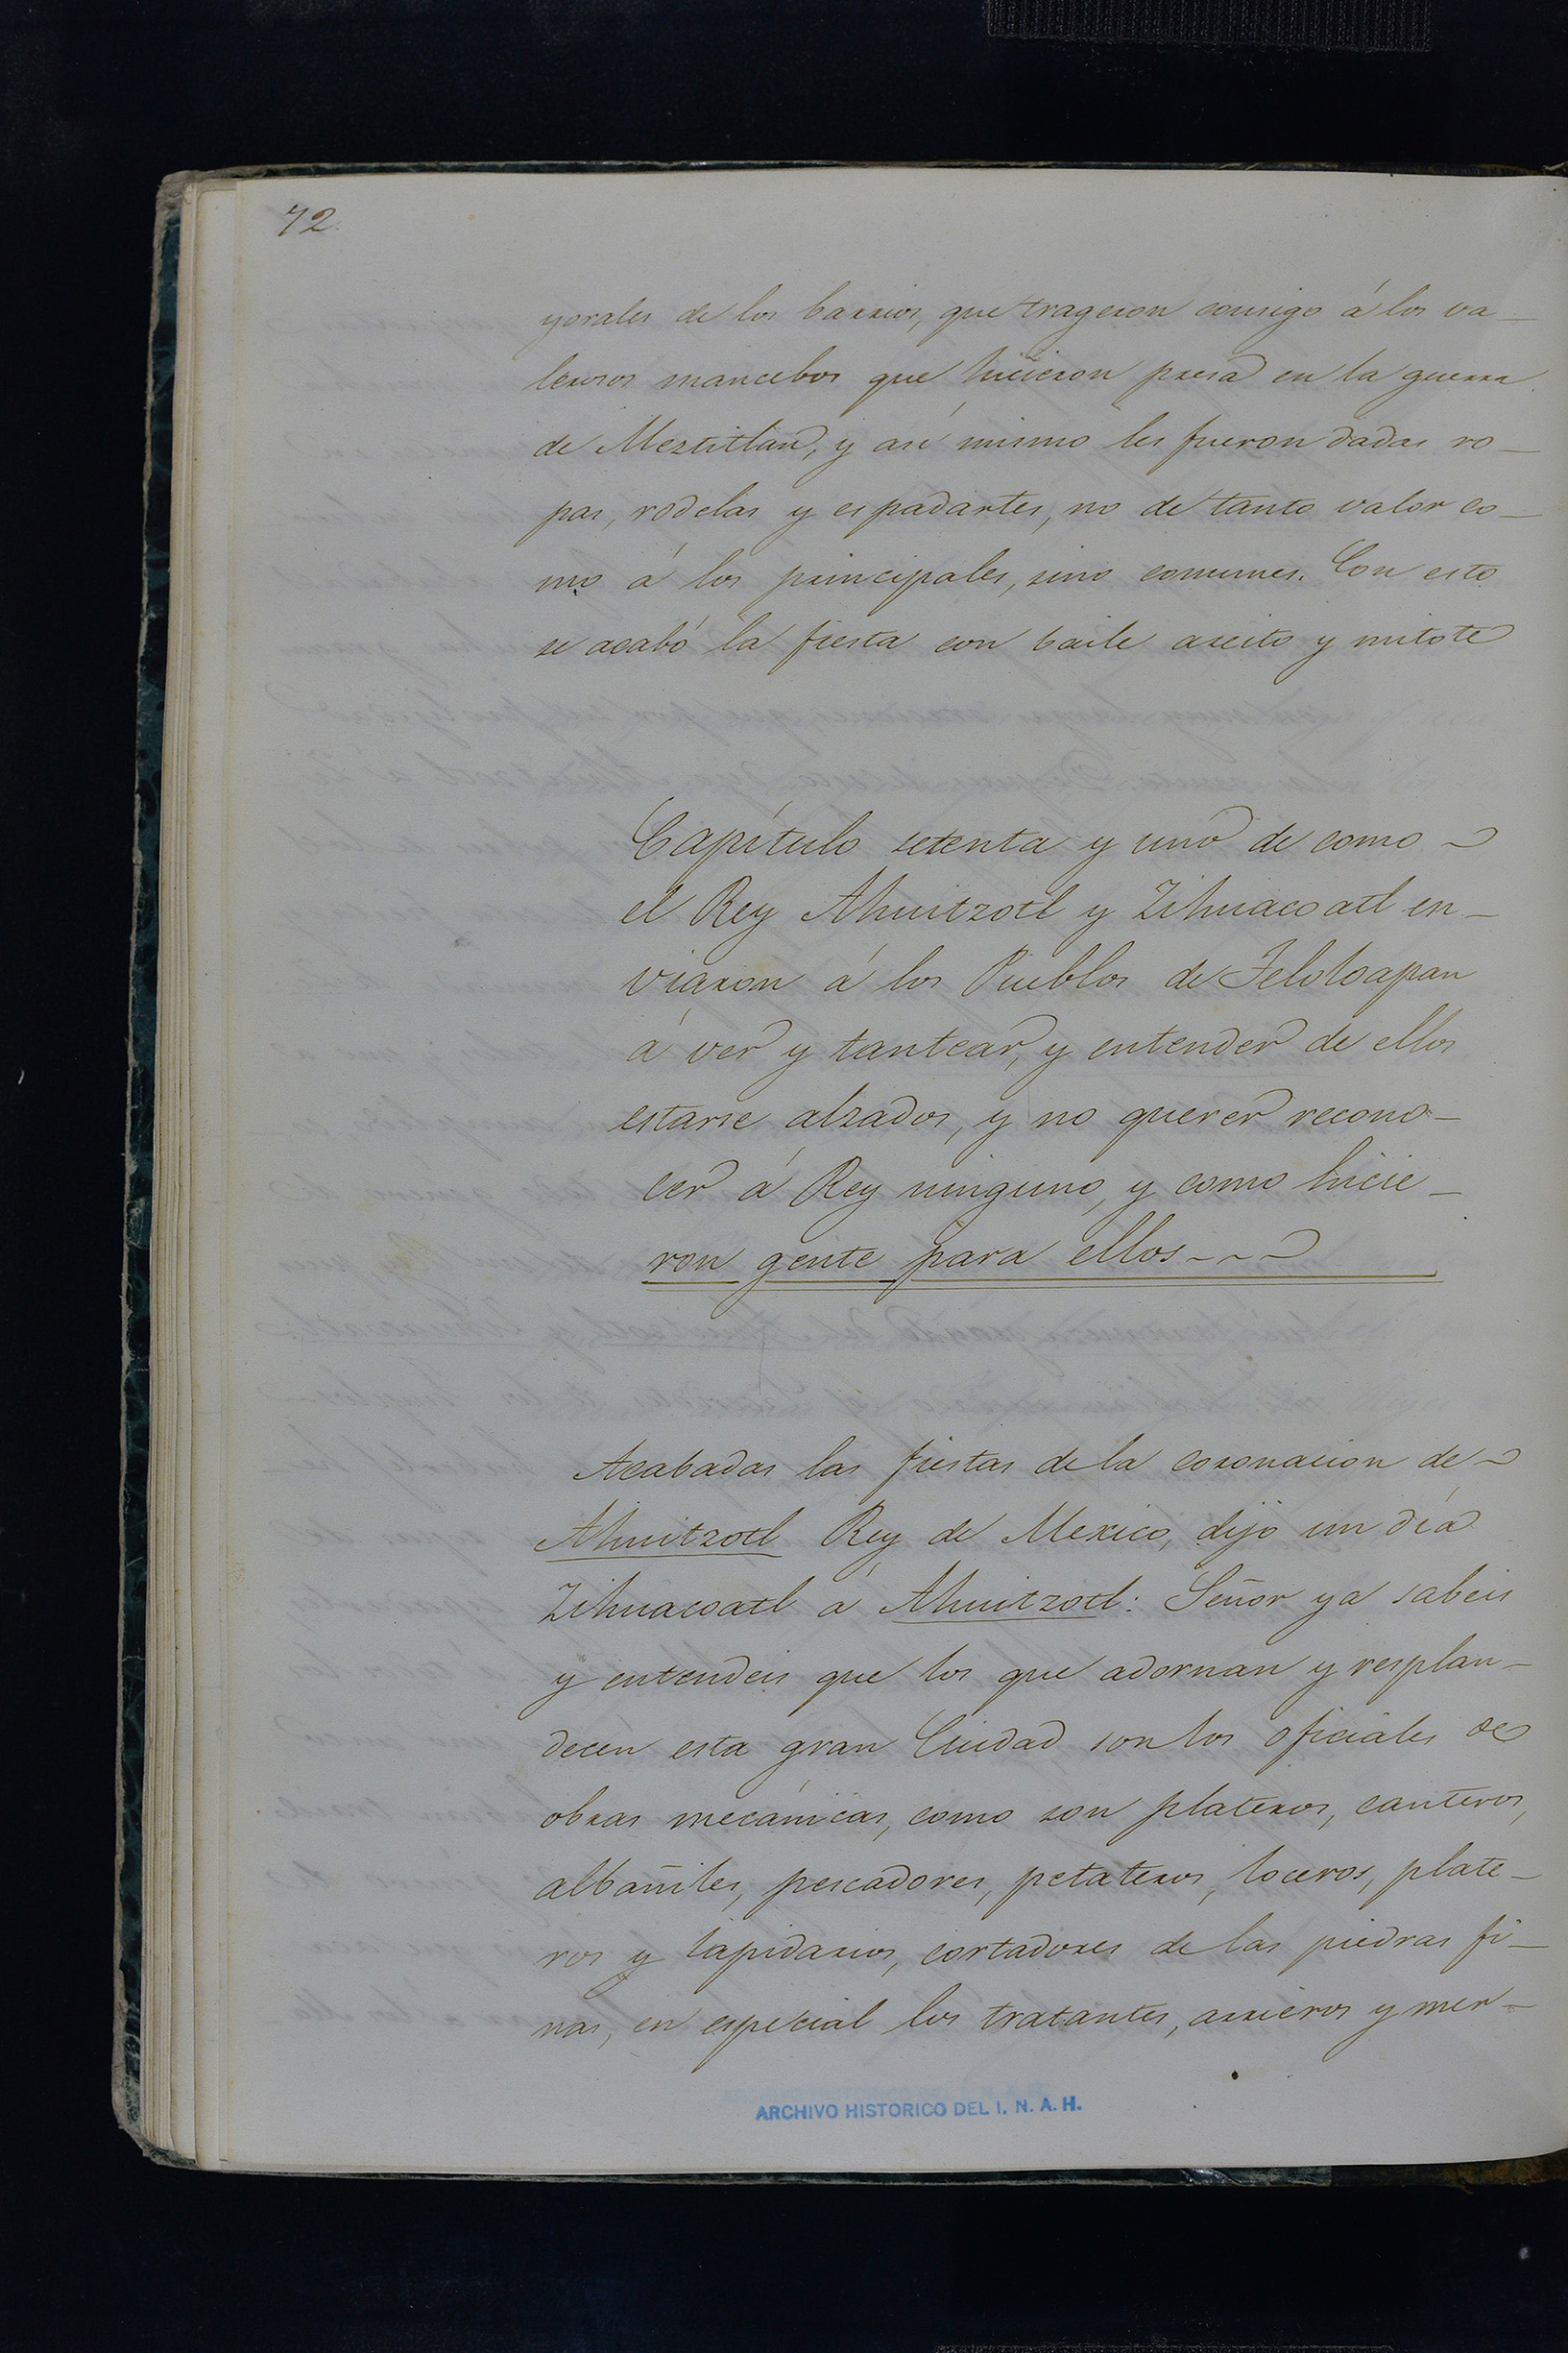 72.
yorales de los barrios, que trageron consigo á los va_
lerosos mancebos que hicieron presa en la guerra
de Meztitlan, y asi mismo les fueron dadas ro_
pas, rodelas y espadartes, no de tanto valor co_
mo á los principales, sino comunes. Con esto
se acabó la fiesta con baile areito y mitote
Capítulo setenta y uno de como
el Rey Ahuitzotl y Zihuacoatl en_
viaron á los Pueblos de Teloloapan
á ver y tantear, y entender de ellos
estarse alzados, y no querer recono_
cer á Rey ninguno, y como hicie_
ron gente para ellos ~ ~ ~
Acabadas las fiestas de la coronacion de
Ahuitzotl Rey de Mexico, dijo un día
Zihuacoatl á Ahuitzotl: Señor ya sabeis
y entendeis que los que adornan y resplan_
decen esta gran Ciudad son los oficiales de
obras mecánicas, como son plateros, canteros,
albañiles, pescadores, petateros, loceros, plate_
ros y lapidarios, cortadores de las piedras fi_
nas, en especial los tratantes, arrieros y mer_
ARCHIVO HISTORICO DEL I. N. A. H.